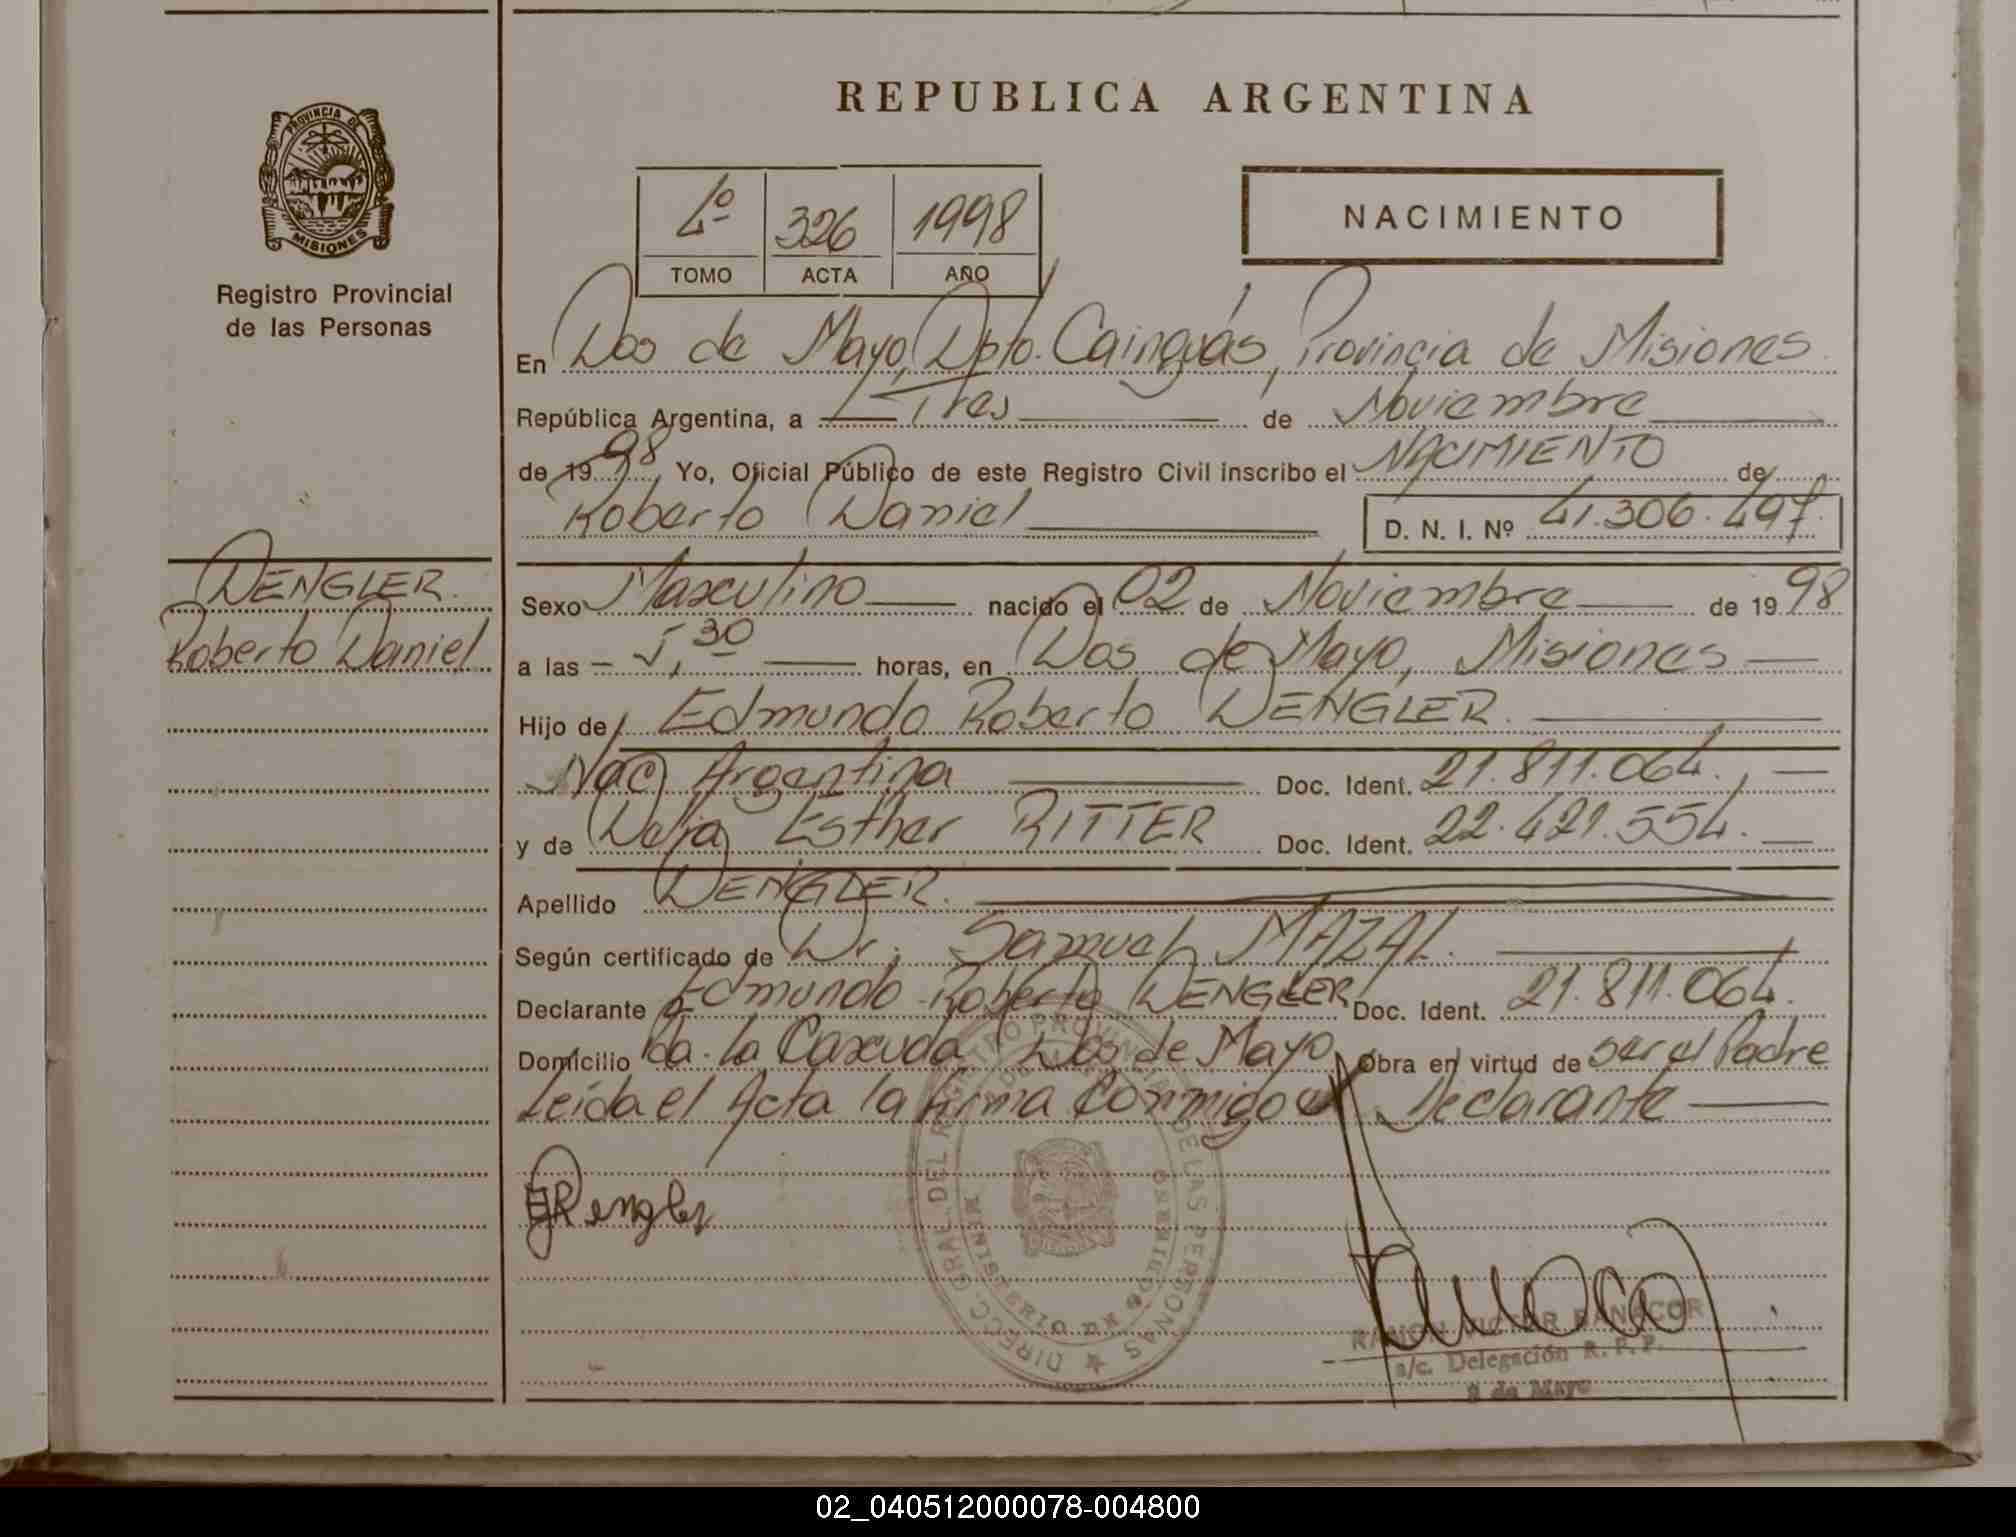 REPUBLICA ARGENTINA
PROVINCIA DE
MISIONES
Registro Provincial
de las Personas
4º 326 1998
TOMO ACTA AÑO
NACIMIENTO
En Dos de Mayo, Dpto. Cainguás, Provincia de Misiones
República Argentina, a Tres de Noviembre
de 1998 Yo, Oficial Público de este Registro Civil inscribo el NACIMIENTO de
Roberto Daniel D. N. I. Nº 41.306.497
DENGLER
Roberto Daniel
Sexo Masculino nacido el 02 de Noviembre de 1998
a las 5,30 horas, en Dos de Mayo, Misiones
Hijo de Edmundo Roberto DENGLER.
Nac. Argentina Doc. Ident. 21.811.064.
y de Delia Esther RITTER Doc. Ident. 22.421.554.
Apellido DENGLER.
Según certificado de Dr. Samuel MAZAL.
Declarante Edmundo Roberto DENGLER Doc. Ident. 21.811.064.
Domicilio La Dos de Mayo Obra en virtud de ser el Padre
Leida el Acta la firma Conmigo el Declarante
DIRECC. GRAL. DEL REGISTRO PROVINCIAL DE LAS PERSONAS
RAMON VICTOR
a/c. Delegación R. P. P.
2 de Mayo
02_040512000078-004800